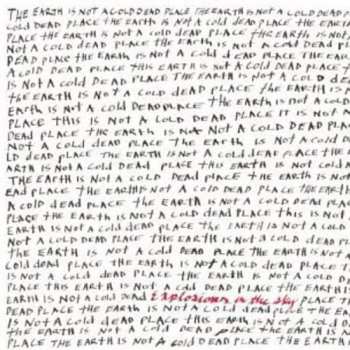 THE EARTH IS NOT A COLD DEAD PLACE THE EARTH IS NOT A COLD DEAD P
COLD DEAD PLACE THE EARTH IS NOT A COLD DEAD PLACE THE EARTH
PLACE THE EARTH IS NOT A COLD DEAD PLACE THE EARTH IS NOT
NOT A COLD DEAD PLACE THE EARTH IS NOT A COLD DEAD PL
DEAD PLACE THE EARTH IS NOT A COLD DEAD PLACE THE EAR
A COLD DEAD PLACE THIS EARTH IS NOT A COLD DEAD PLACE T
IS NOT A COLD DEAD PLACE THE EARTH IS NOT A COLD DE
THE EARTH IS NOT A COLD DEAD PLACE THE EARTH IS P
EARTH IS NOT A COLD DEAD PLACE THE EARTH IS NOT A COLD
PLACE THIS IS NOT A COLD DEAD PLACE IT IS NOT A
DEAD PLACE THE EARTH IS NOT A COLD DEAD PLACE
NOT A COLD DEAD PLACE THE EARTH IS NOT A COLD D
LD DEAD PLACE THE EARTH IS NOT A COLD DEAD PLACE THE
ARTH IS NOT A COLD DEAD PLACE THE EARTH IS NOT A COLD
THE EARTH IS NOT A COLD DEAD PLACE THE EARTH IS NOT
EAD PLACE THE EARTH IS NOT A COLD DEAD PLACE THE EARTH
A COLD DEAD PLACE THE EARTH IS NOT A COLD DEAD PLACE
PLACE THE EARTH IS NOT A COLD DEAD PLACE THIS IS NOT
EARTH IS NOT A COLD DEAD PLACE THE EARTH IS NOT A COLD
NOT A COLD DEAD PLACE THE EARTH IS NOT A COLD DEAD
THE EARTH IS NOT A COLD DEAD PLACE THE EARTH IS NOT
COLD DEAD PLACE THE EARTH IS NOT A COLD DEAD PLACE T
IS NOT A COLD DEAD PLACE THE EARTH IS NOT A COLD D
PLACE THIS EARTH IS NOT A COLD DEAD PLACE THE EARTH
EARTH IS NOT A COLD DEAD Explosions in the Sky PLACE T
DEAD PLACE THE EARTH IS NOT A COLD DEAD PLACE THE EAR
IS NOT A COLD DEAD PLACE THE EARTH IS NOT A COLD D
THE EARTH IS NOT A COLD DEAD PLACE THE EARTH IS
PLACE THE EARTH IS NOT A COLD DEAD PLACE THE EARTH IS N